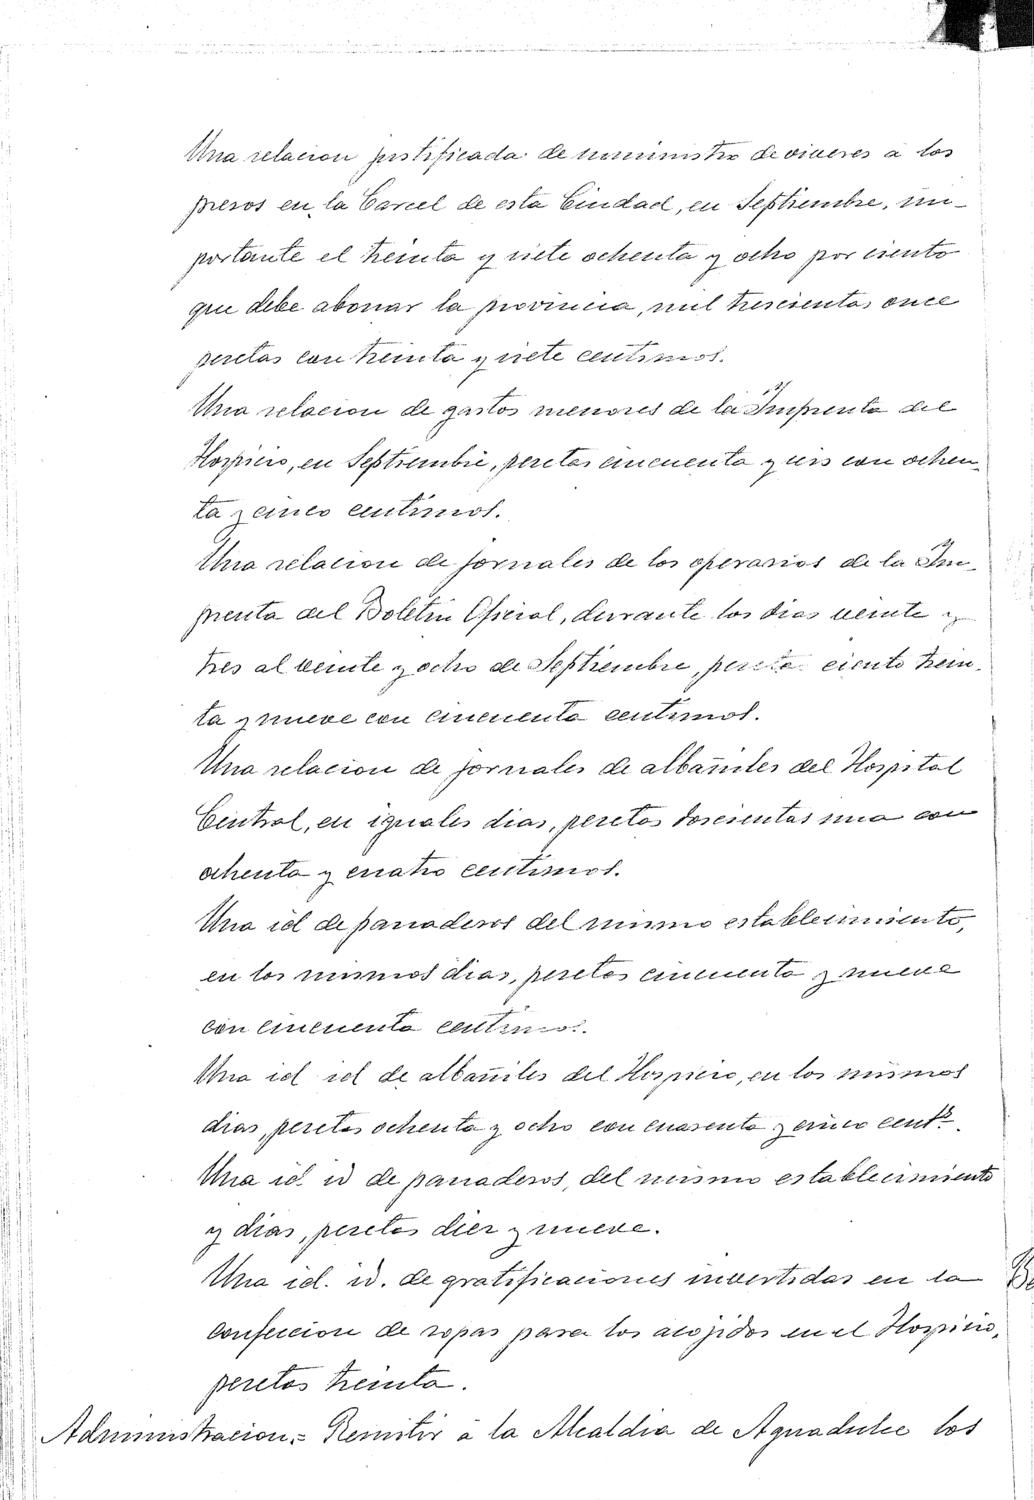 Una relacion justificada de suministro de viveres á los
presos en la Carcel de esta Ciudad, en Septiembre, im-
portante el treinta y siete ochenta y ocho por ciento
que debe abonar la provincia, mil trescientas once
pesetas con treinta y siete centimos.
Una relacion de gastos menores de la Imprenta del
Hospicio, en Septiembre, pesetas cincuenta y seis con ochen-
ta y cinco centimos.
Una relacion de jornales de los operarios de la Im-
prenta del Boletin Oficial, durante los dias veinte y
tres al veinte y ocho de Septiembre, peseta ciento trein-
ta y nueve con cincuenta centimos.
Una relacion de jornales de albañiles del Hospital
Central, en iguales dias, pesetas doscientas una con
ochenta y cuatro centimos.
Una id de panaderos del mismo establecimiento,
en los mismos dias, pesetas cincuenta y nueve
con cincuenta centimos.
Una id id de albañiles del Hospicio, en los mismos
dias, pesetas ochenta y ocho con cuarenta y cinco cents.
Una id. id de panaderos, del mismo establecimiento
y dias, pesetas diez y nueve.
Una id. id. de gratificaciones invertidas en la
confeccion de ropas para los acojidos en el Hospicio,
pesetas treinta.
Administracion.= Remitir á la Alcaldia de Aguadulce los